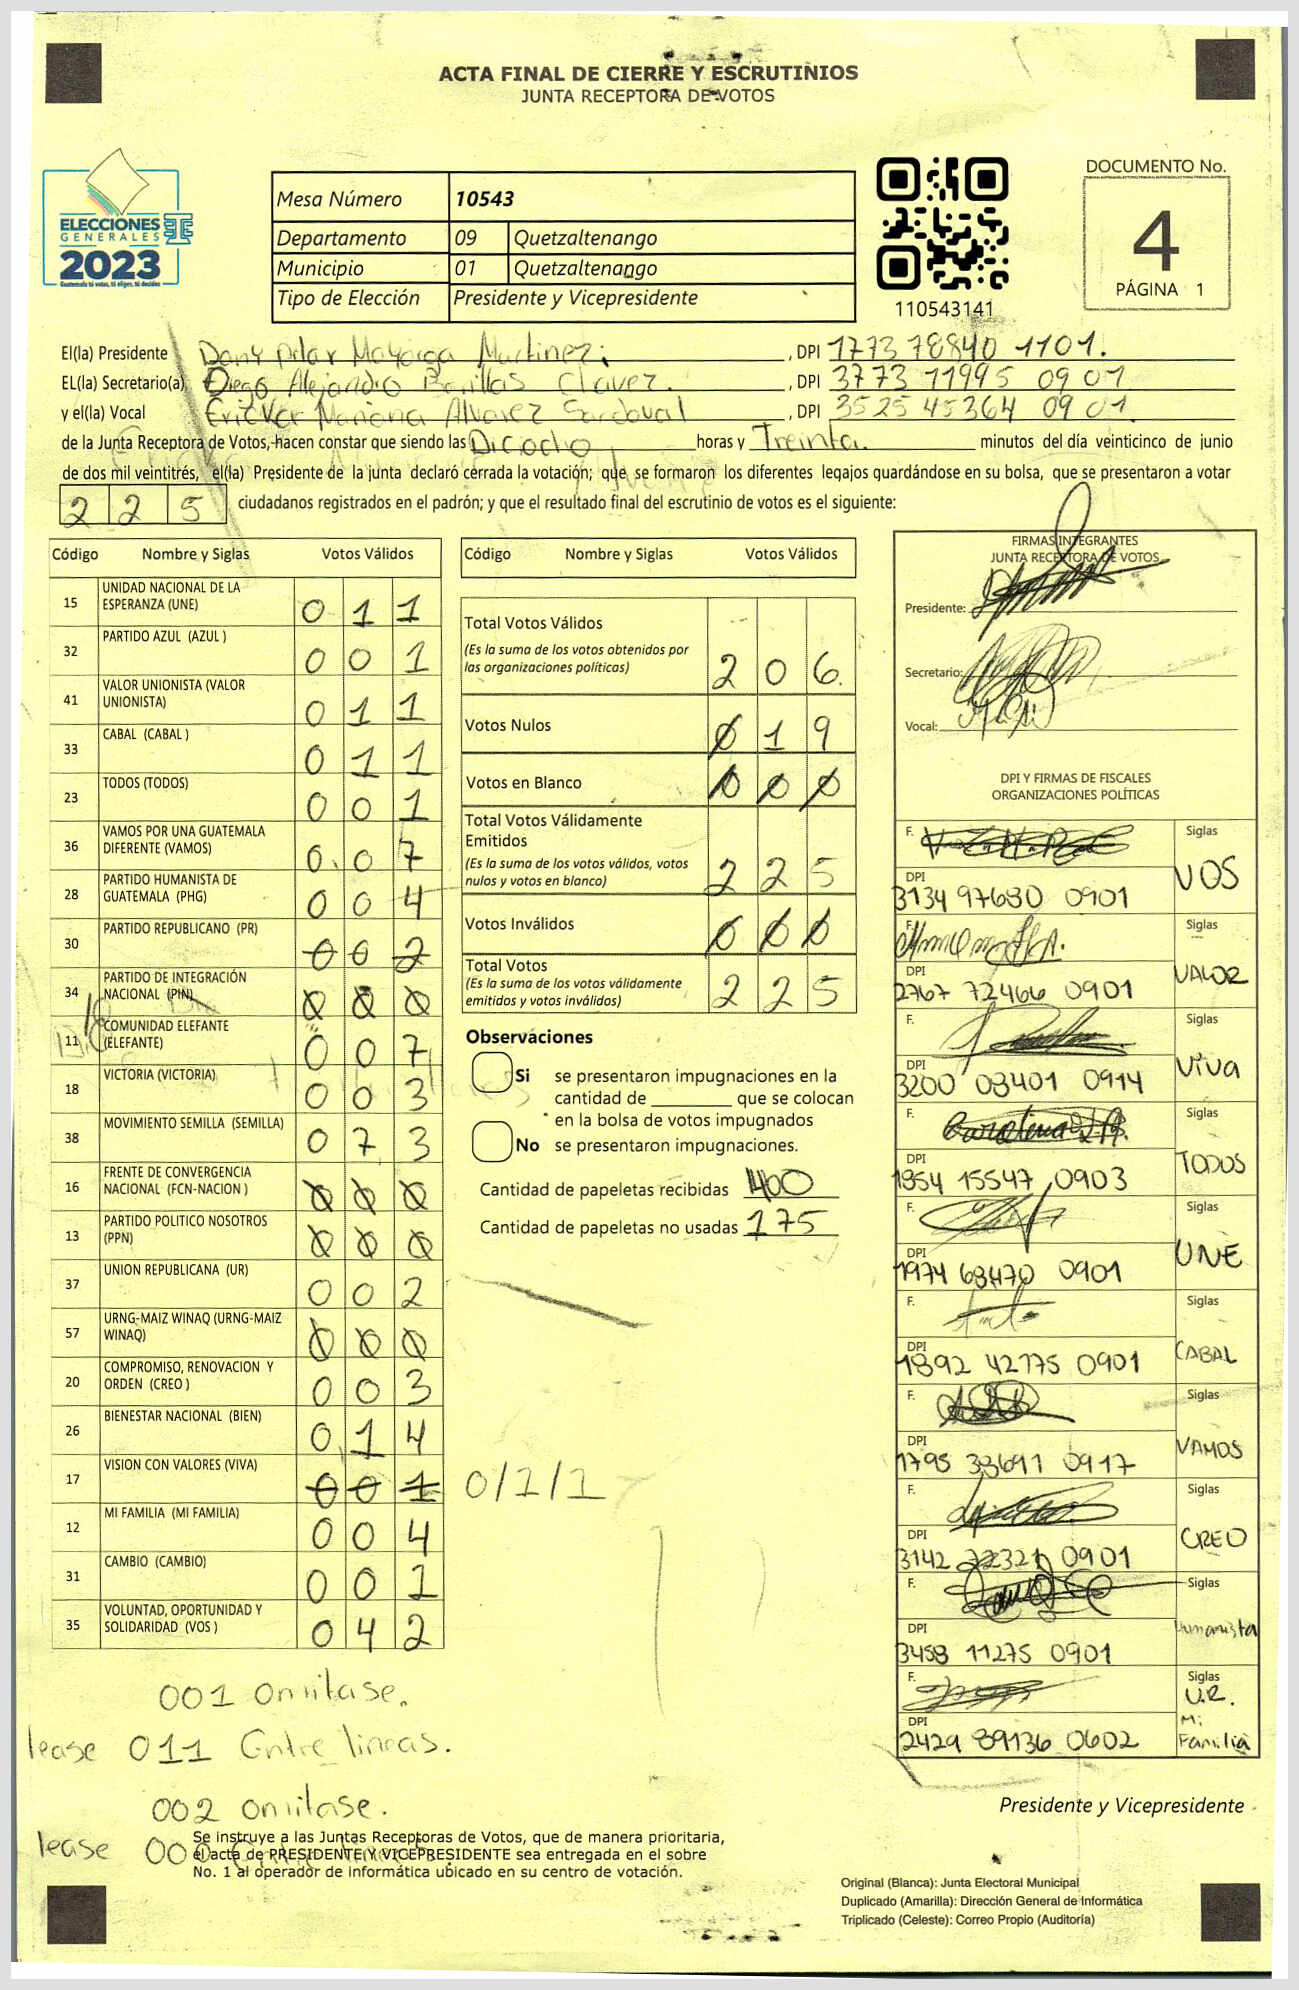 ACTA FINAL DE CIERRE Y ESCRUTINIOS
JUNTA RECEPTORA DE VOTOS
ELECCIONES
GENERALES
2023
Guatemala tú votas, tú eliges, tú decides
Mesa Número 10543
Departamento 09 Quetzaltenango
Municipio 01 Quetzaltenango
Tipo de Elección Presidente y Vicepresidente
110543141
DOCUMENTO No.
4
PÁGINA 1
El(la) Presidente Dany Pilar Mayorga Martinez, DPI 1773 78840 1101.
EL(la) Secretario(a) Diego Alejandro Barillas Chavez. , DPI 3773 11995 0901
y el(la) Vocal Mariana Alvarez Sandoval , DPI 3525 45364 0901.
de la Junta Receptora de Votos, hacen constar que siendo las Dicocho horas y Treinta. minutos del día veinticinco de junio
de dos mil veintitrés, el(la) Presidente de la junta declaró cerrada la votación; que se formaron los diferentes legajos guardándose en su bolsa, que se presentaron a votar
225 ciudadanos registrados en el padrón; y que el resultado final del escrutinio de votos es el siguiente:
Código Nombre y Siglas Votos Válidos
15 UNIDAD NACIONAL DE LA ESPERANZA (UNE) 011
32 PARTIDO AZUL (AZUL ) 001
41 VALOR UNIONISTA (VALOR UNIONISTA) 011
33 CABAL (CABAL ) 011
23 TODOS (TODOS) 001
36 VAMOS POR UNA GUATEMALA DIFERENTE (VAMOS) 007
28 PARTIDO HUMANISTA DE GUATEMALA (PHG) 004
30 PARTIDO REPUBLICANO (PR) 002
34 PARTIDO DE INTEGRACIÓN NACIONAL (PIN) 000
11 COMUNIDAD ELEFANTE (ELEFANTE) 007
18 VICTORIA (VICTORIA) 003
38 MOVIMIENTO SEMILLA (SEMILLA) 073
16 FRENTE DE CONVERGENCIA NACIONAL (FCN-NACION ) 000
13 PARTIDO POLITICO NOSOTROS (PPN) 000
37 UNION REPUBLICANA (UR) 002
57 URNG-MAIZ WINAQ (URNG-MAIZ WINAQ) 000
20 COMPROMISO, RENOVACION Y ORDEN (CREO ) 003
26 BIENESTAR NACIONAL (BIEN) 014
17 VISION CON VALORES (VIVA) 001 0/1/1
12 MI FAMILIA (MI FAMILIA) 004
31 CAMBIO (CAMBIO) 001
35 VOLUNTAD, OPORTUNIDAD Y SOLIDARIDAD (VOS ) 042
001 Omitase.
lease 011 Entre lineas.
002 omitase.
lease 000
Código Nombre y Siglas Votos Válidos
Total Votos Válidos 206
(Es la suma de los votos obtenidos por
las organizaciones políticas)
Votos Nulos 019
Votos en Blanco 000
Total Votos Válidamente
Emitidos 225
(Es la suma de los votos válidos, votos
nulos y votos en blanco)
Votos Inválidos 000
Total Votos 225
(Es la suma de los votos válidamente
emitidos y votos inválidos)
Observaciones
Si se presentaron impugnaciones en la
cantidad de ________ que se colocan
en la bolsa de votos impugnados
No se presentaron impugnaciones.
Cantidad de papeletas recibidas 400
Cantidad de papeletas no usadas 175
FIRMAS INTEGRANTES
JUNTA RECEPTORA DE VOTOS
Presidente:
Secretario:
Vocal:
DPI Y FIRMAS DE FISCALES
ORGANIZACIONES POLÍTICAS
F. Siglas
DPI VOS
3134 97680 0901
F. Siglas
DPI VALOR
2767 72466 0901
F. Siglas
DPI Viva
3200 03401 0914
F. Carolina Siglas
DPI TODOS
1954 15547 0903
F. Siglas
DPI UNE
1974 63470 0901
F. Siglas
CABAL
1892 42775 0901
F. Siglas
DPI VAMOS
1795 33691 0917
F. Siglas
DPI CREO
3142 22321 0901
F. Siglas
DPI Humanista
3458 11275 0901
F. Siglas
U.R.
DPI Mi
2429 89136 0602 Familia
Presidente y Vicepresidente
Se instruye a las Juntas Receptoras de Votos, que de manera prioritaria,
el acta de PRESIDENTE Y VICEPRESIDENTE sea entregada en el sobre
No. 1 al operador de informática ubicado en su centro de votación.
Original (Blanca): Junta Electoral Municipal
Duplicado (Amarilla): Dirección General de Informática
Triplicado (Celeste): Correo Propio (Auditoría)